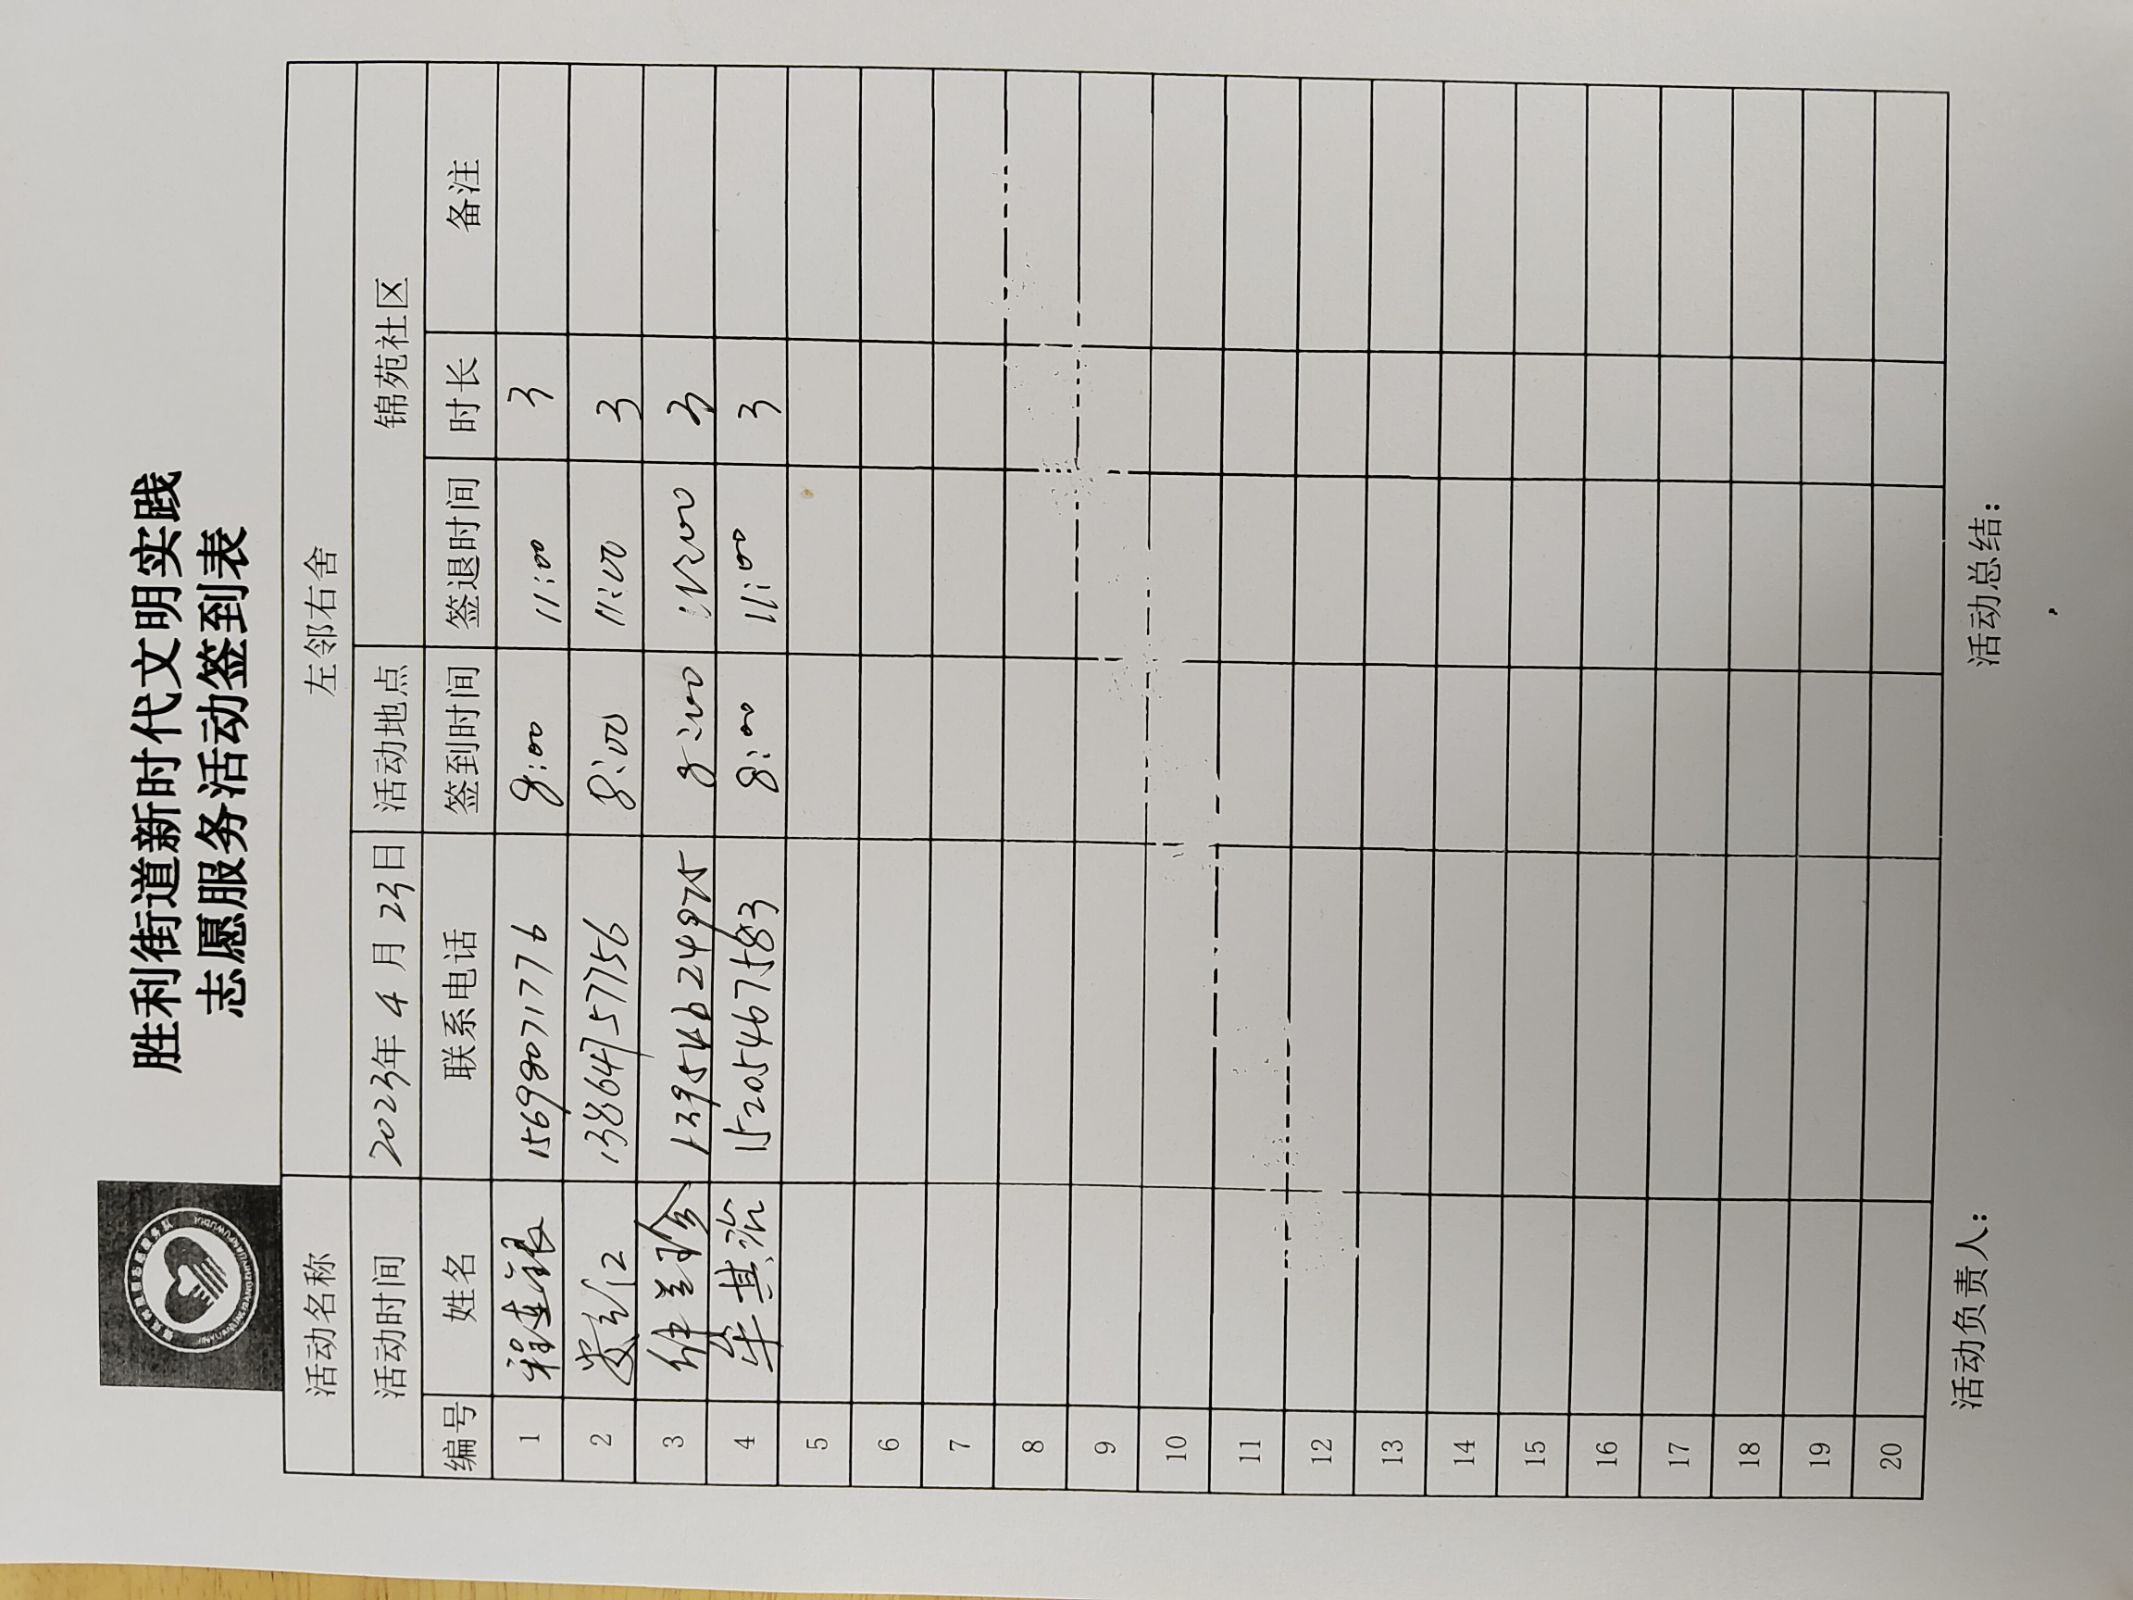 胜利街道新时代文明实践
志愿服务活动签到表
活动名称 左邻右舍
活动时间 2023年 4 月 23 日 活动地点 锦苑社区
编号 姓名 联系电话 签到时间 签退时间 时长 备注
1 程连银 15698071776 8:00 11:00 3
2 13864757756 8:00 11:00 3
3 13954624975 8:00 11:00 3
4 牟其治 15205467583 8:00 11:00 3
5
6
7
8
9
10
11
12
13
14
15
16
17
18
19
20
活动负责人: 活动总结: